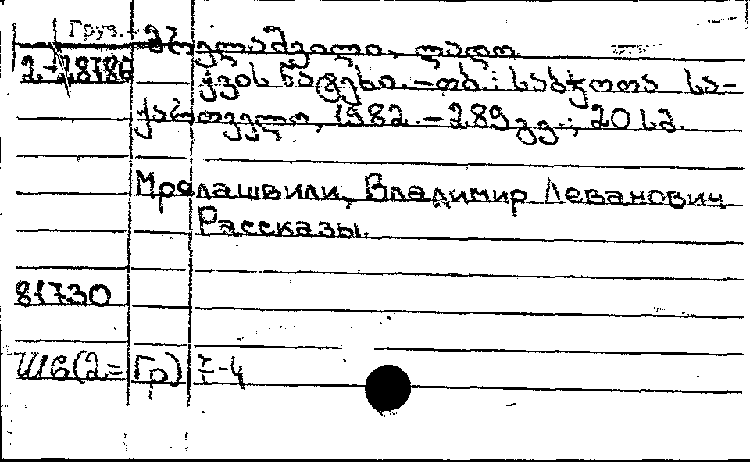 Груз.
მრელაშვილი, ლადო
2.-28786
ქვის ნატეხი. - თბ.: საბჭოთა სა-
ქართველო, 1982. - 289 გვ.; 20 სმ.
Мрелашвили, Владимир Леванович
Рассказы.
81730
Ш6(2=Гр) I-4